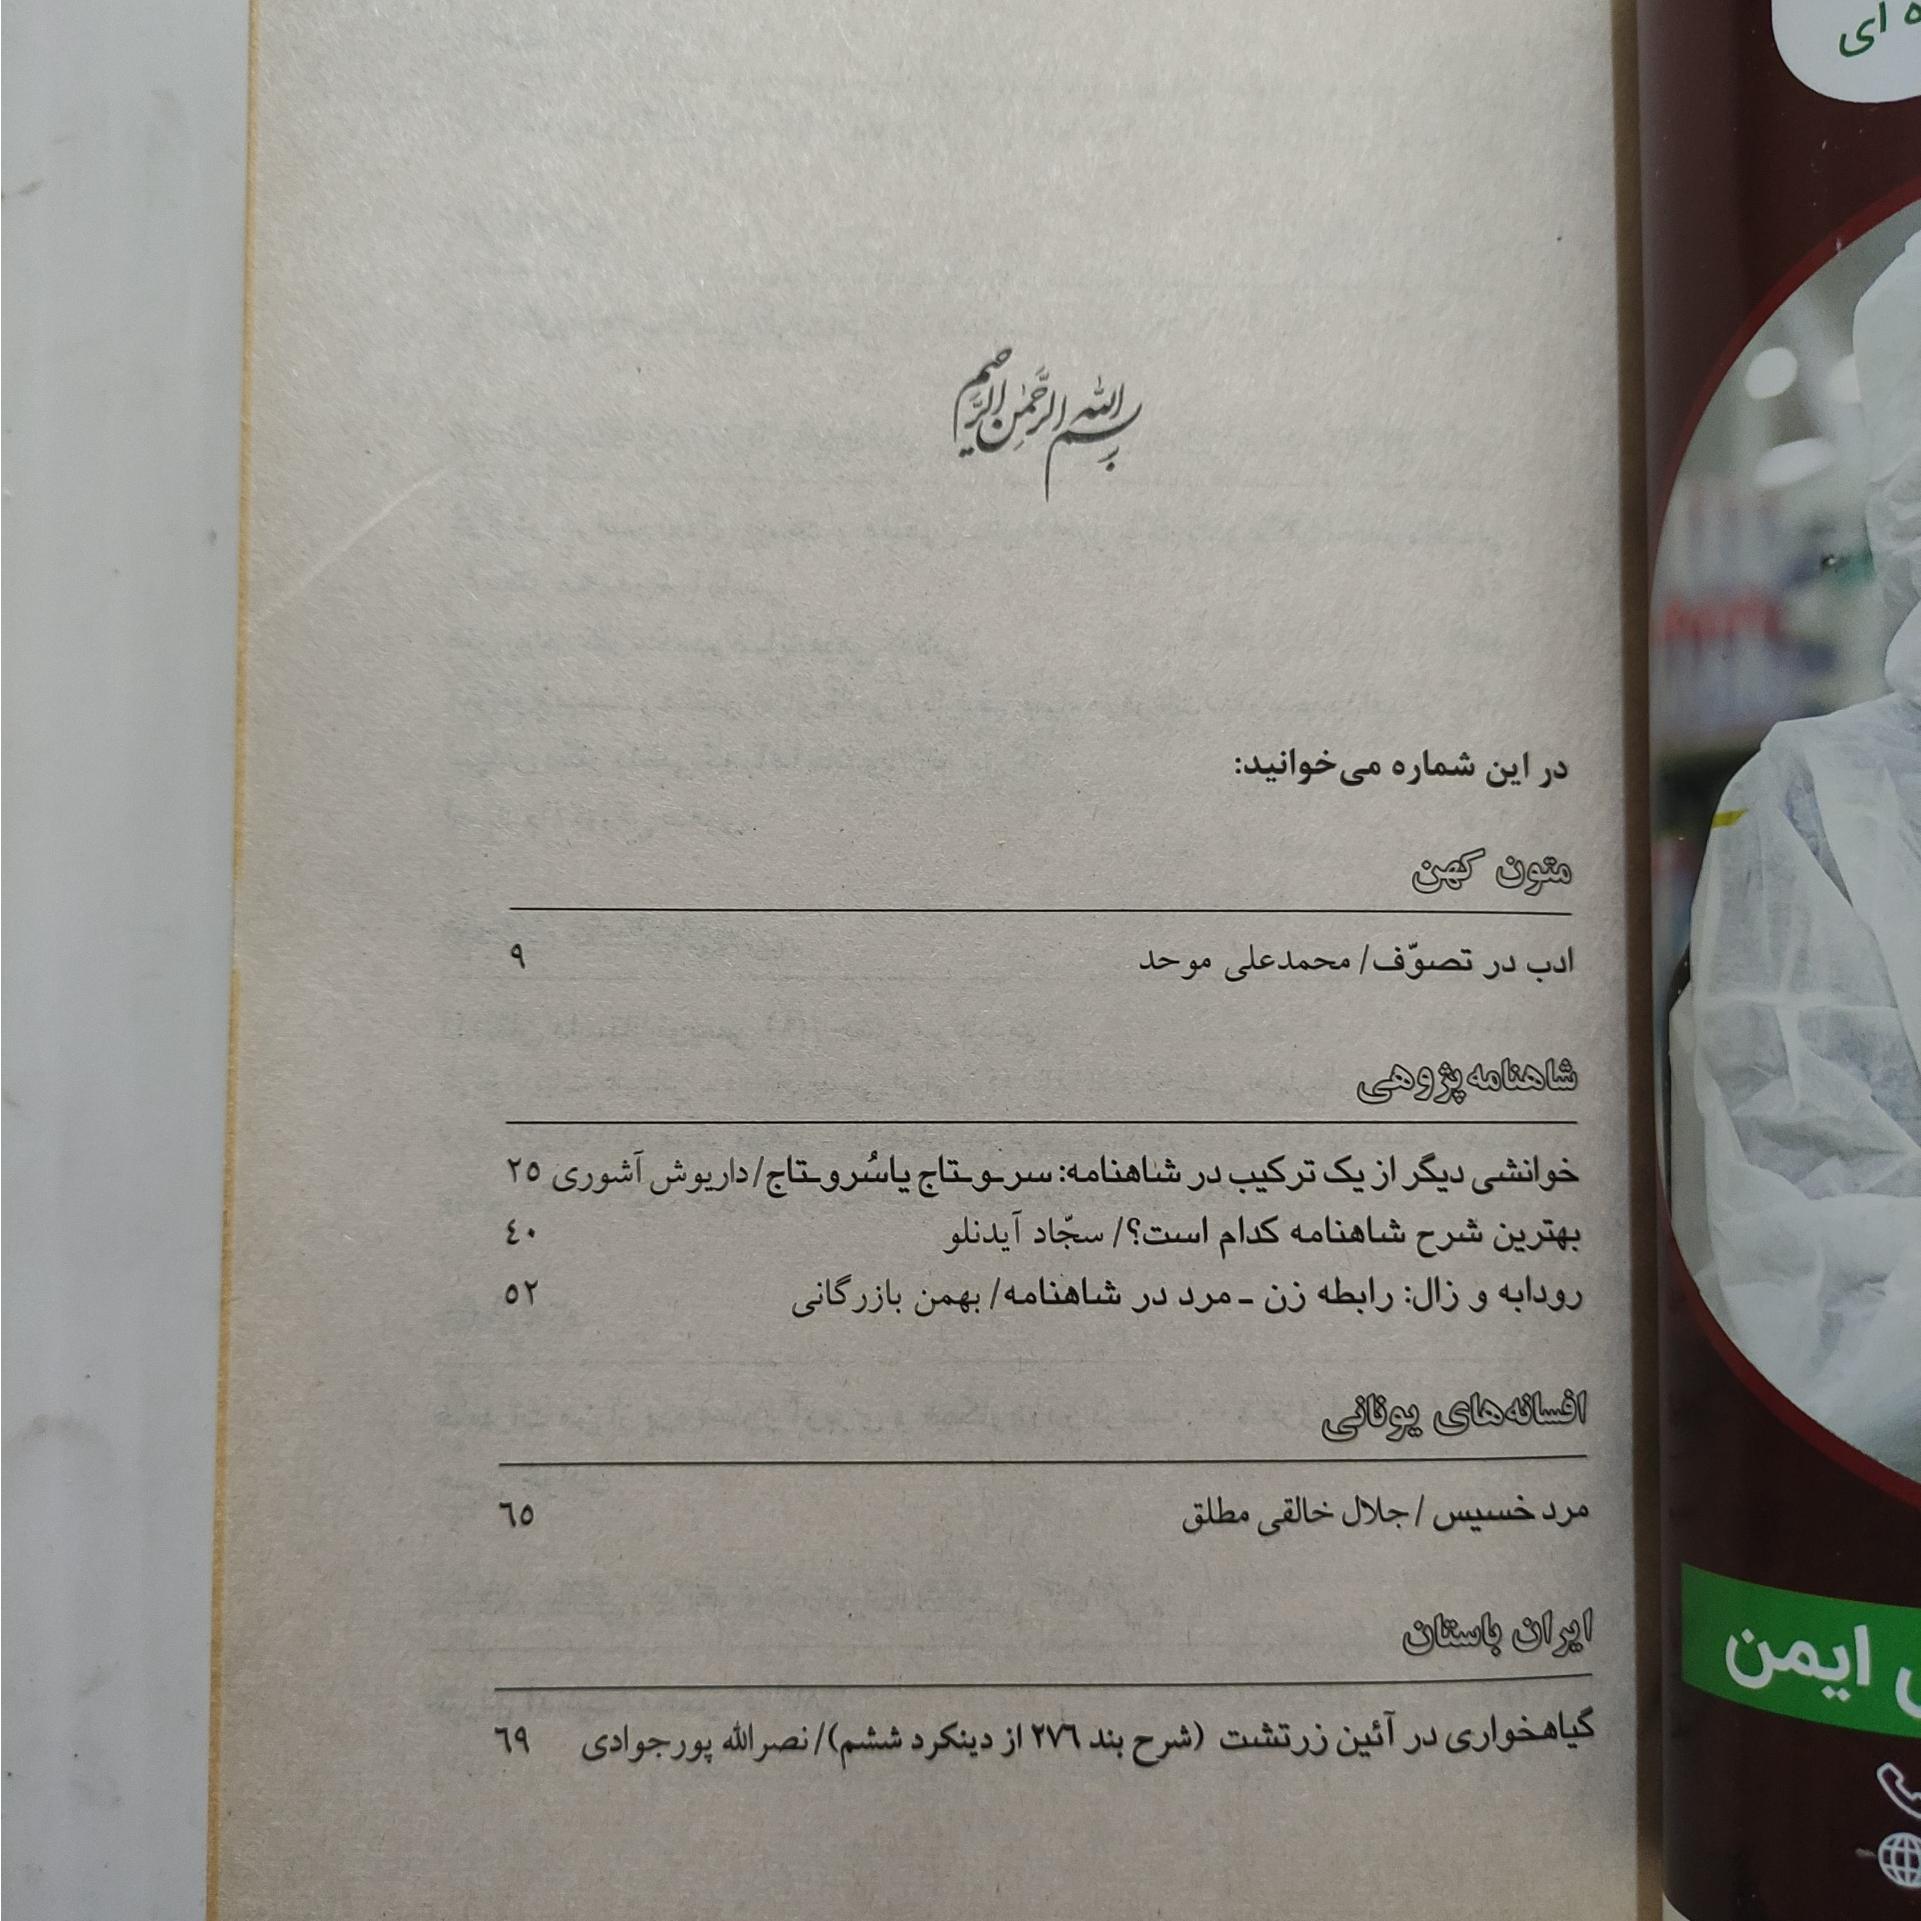 ه ای
بسم الله الرحمن الرحیم
در این شماره می‌خوانید:
متون کهن
ادب در تصوّف/ محمدعلی موحد ۹
شاهنامه‌پژوهی
خوانشی دیگر از یک ترکیب در شاهنامه: سرـوـتاج یا سُروـتاج/داریوش آشوری ۲۵
بهترین شرح شاهنامه کدام است؟/ سجّاد آیدنلو ۴۰
رودابه و زال: رابطه زن ـ مرد در شاهنامه/ بهمن بازرگانی ۵۲
افسانه‌های یونانی
مرد خسیس/جلال خالقی مطلق ۶۵
ایران باستان
گیاهخواری در آئین زرتشت (شرح بند ۲۷۶ از دینکرد ششم)/نصرالله پورجوادی ۶۹
ایمن